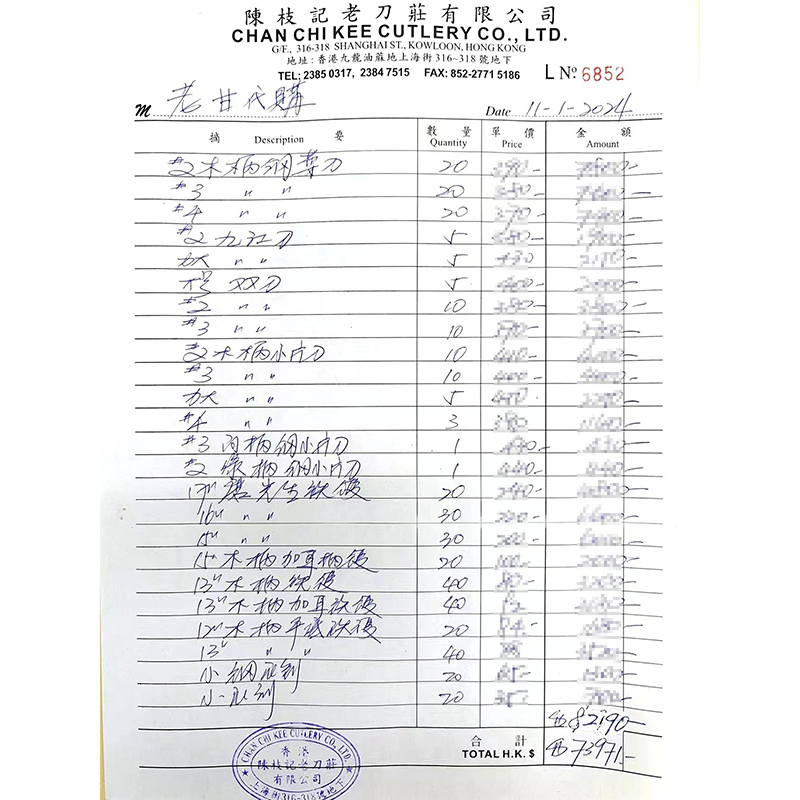 陳枝記老刀莊有限公司
CHAN CHI KEE CUTLERY CO., LTD.
G/F., 316-318 SHANGHAI ST., KOWLOON, HONG KONG
地址:香港九龍油蔴地上海街316~318號地下
TEL: 2385 0317, 2384 7515 FAX: 852-2771 5186 L Nº 6852
M 老甘代購 Date 11-1-2024
摘 Description 要 數量 Quantity 單價 Price 金額 Amount
#2 木柄鋼薄刀 20
#3 〃 〃 20
#4 〃 〃 20
#2 九江刀 5
加大 〃 〃 5
双刀 5
#2 〃 〃 10
#3 〃 〃 10
#2 木柄小片刀 10
#3 〃 〃 10
加大 〃 〃 5
#4 〃 〃 3
#3 柄鋼小片刀 1
#2 柄鋼小片刀 1
17" 先生鉄鑊 20
16" 〃 〃 30
15" 〃 〃 30
15" 木柄加耳柄鑊 20
13" 木柄鉄鑊 40
13" 木柄加耳鉄鑊 40
12" 木柄平底鉄鑊 20
13" 〃 〃 40
小鋼 20
小 20
82190-
合計 TOTAL H.K. $ 73971-
CHAN CHI KEE CUTLERY CO., LTD.
香港
陳枝記老刀莊
有限公司
上海街316-318號地下